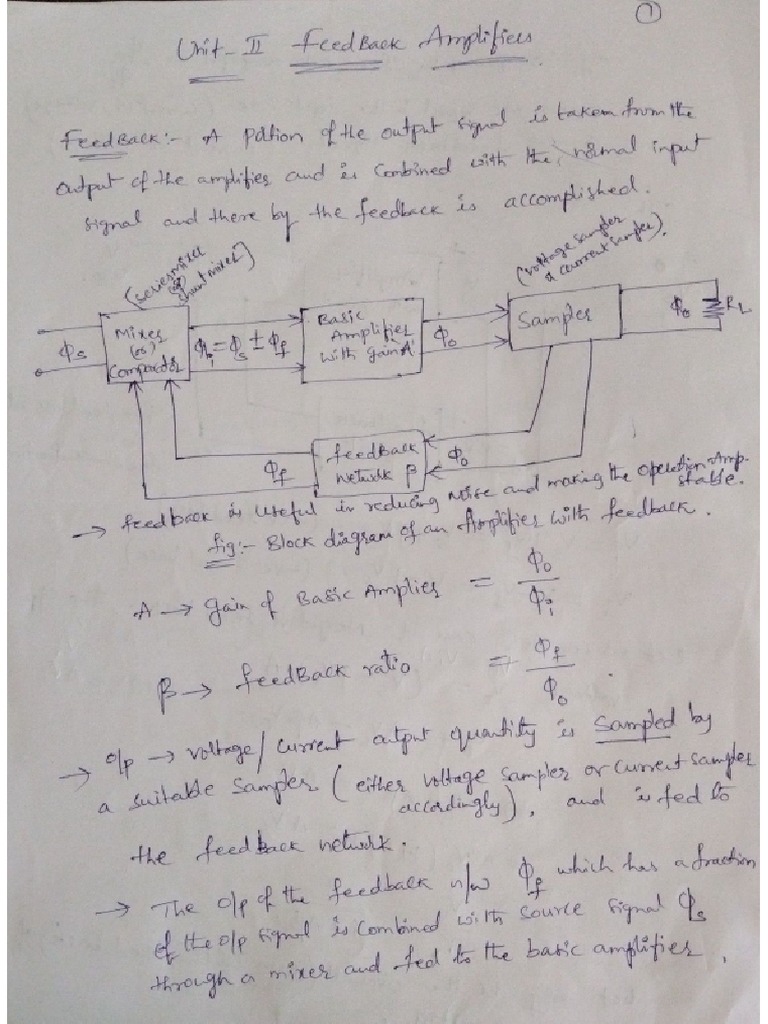 ①
Unit-II FeedBack Amplifiers
FeedBack:- A potion of the output signal is taken from the
output of the amplifier and is combined with the normal input
signal and there by the feedback is accomplished.
(seriesmixer
(or)
shuntmixer)
(voltage sampler
& current sampler).
ϕs
Mixer
(or)
Comparator
ϕi = ϕs ± ϕf
Basic
Amplifier
with gain 'A'
ϕo
Sampler
ϕo
RL
ϕf
feedBack
network β
ϕo
→ feedback is useful in reducing noise and making the operation Amp-
stable.
fig:- Block diagram of an Amplifier with feedback.
A → gain of Basic Amplies = ϕo/ϕi
β → feedBack ratio = ϕf/ϕo.
→ o/p → voltage/current output quantity is sampled by
a suitable sampler (either voltage sampler or current sampler
accordingly), and is fed to
the feedback network.
→ The o/p of the feedback n/w ϕf which has a fraction
of the o/p signal is combined with source signal ϕs
through a mixer and fed to the basic amplifier.